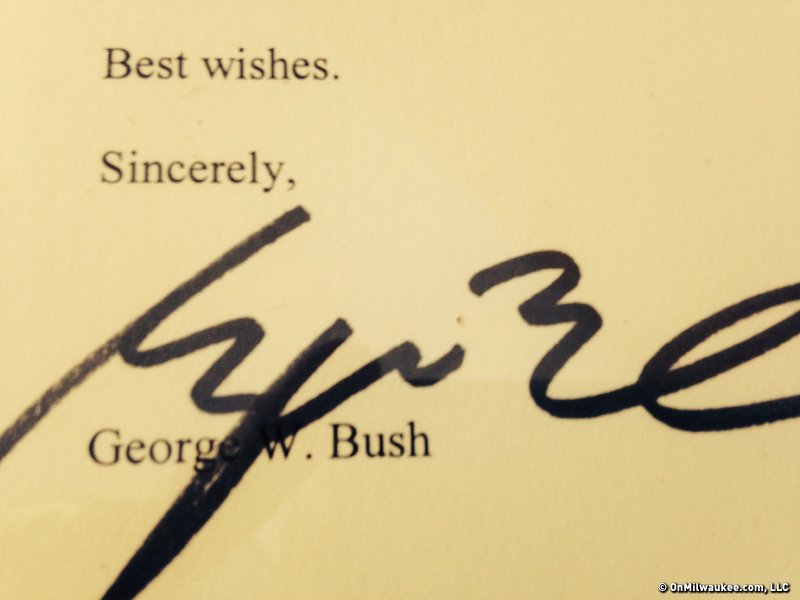 Best wishes.
Sincerely,
George W. Bush
© OnMilwaukee.com, LLC